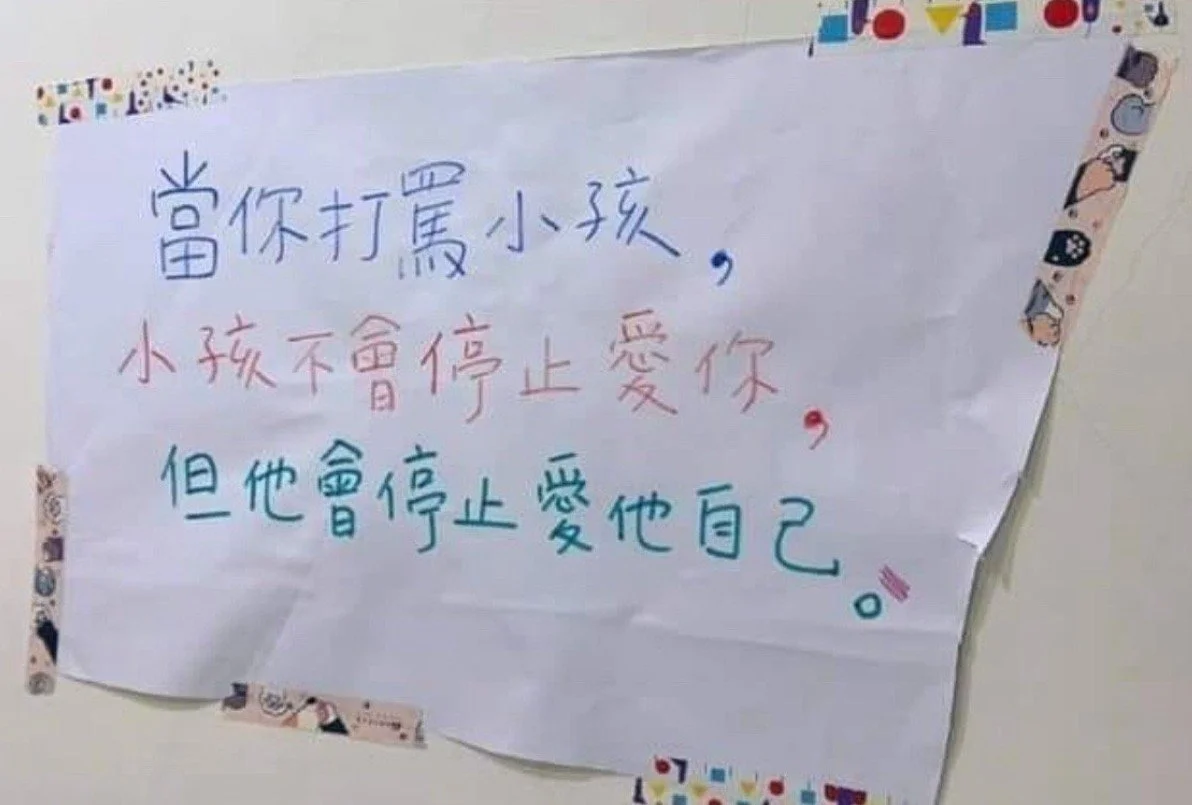 當你打罵小孩,
小孩不會停止愛你,
但他會停止愛他自己。